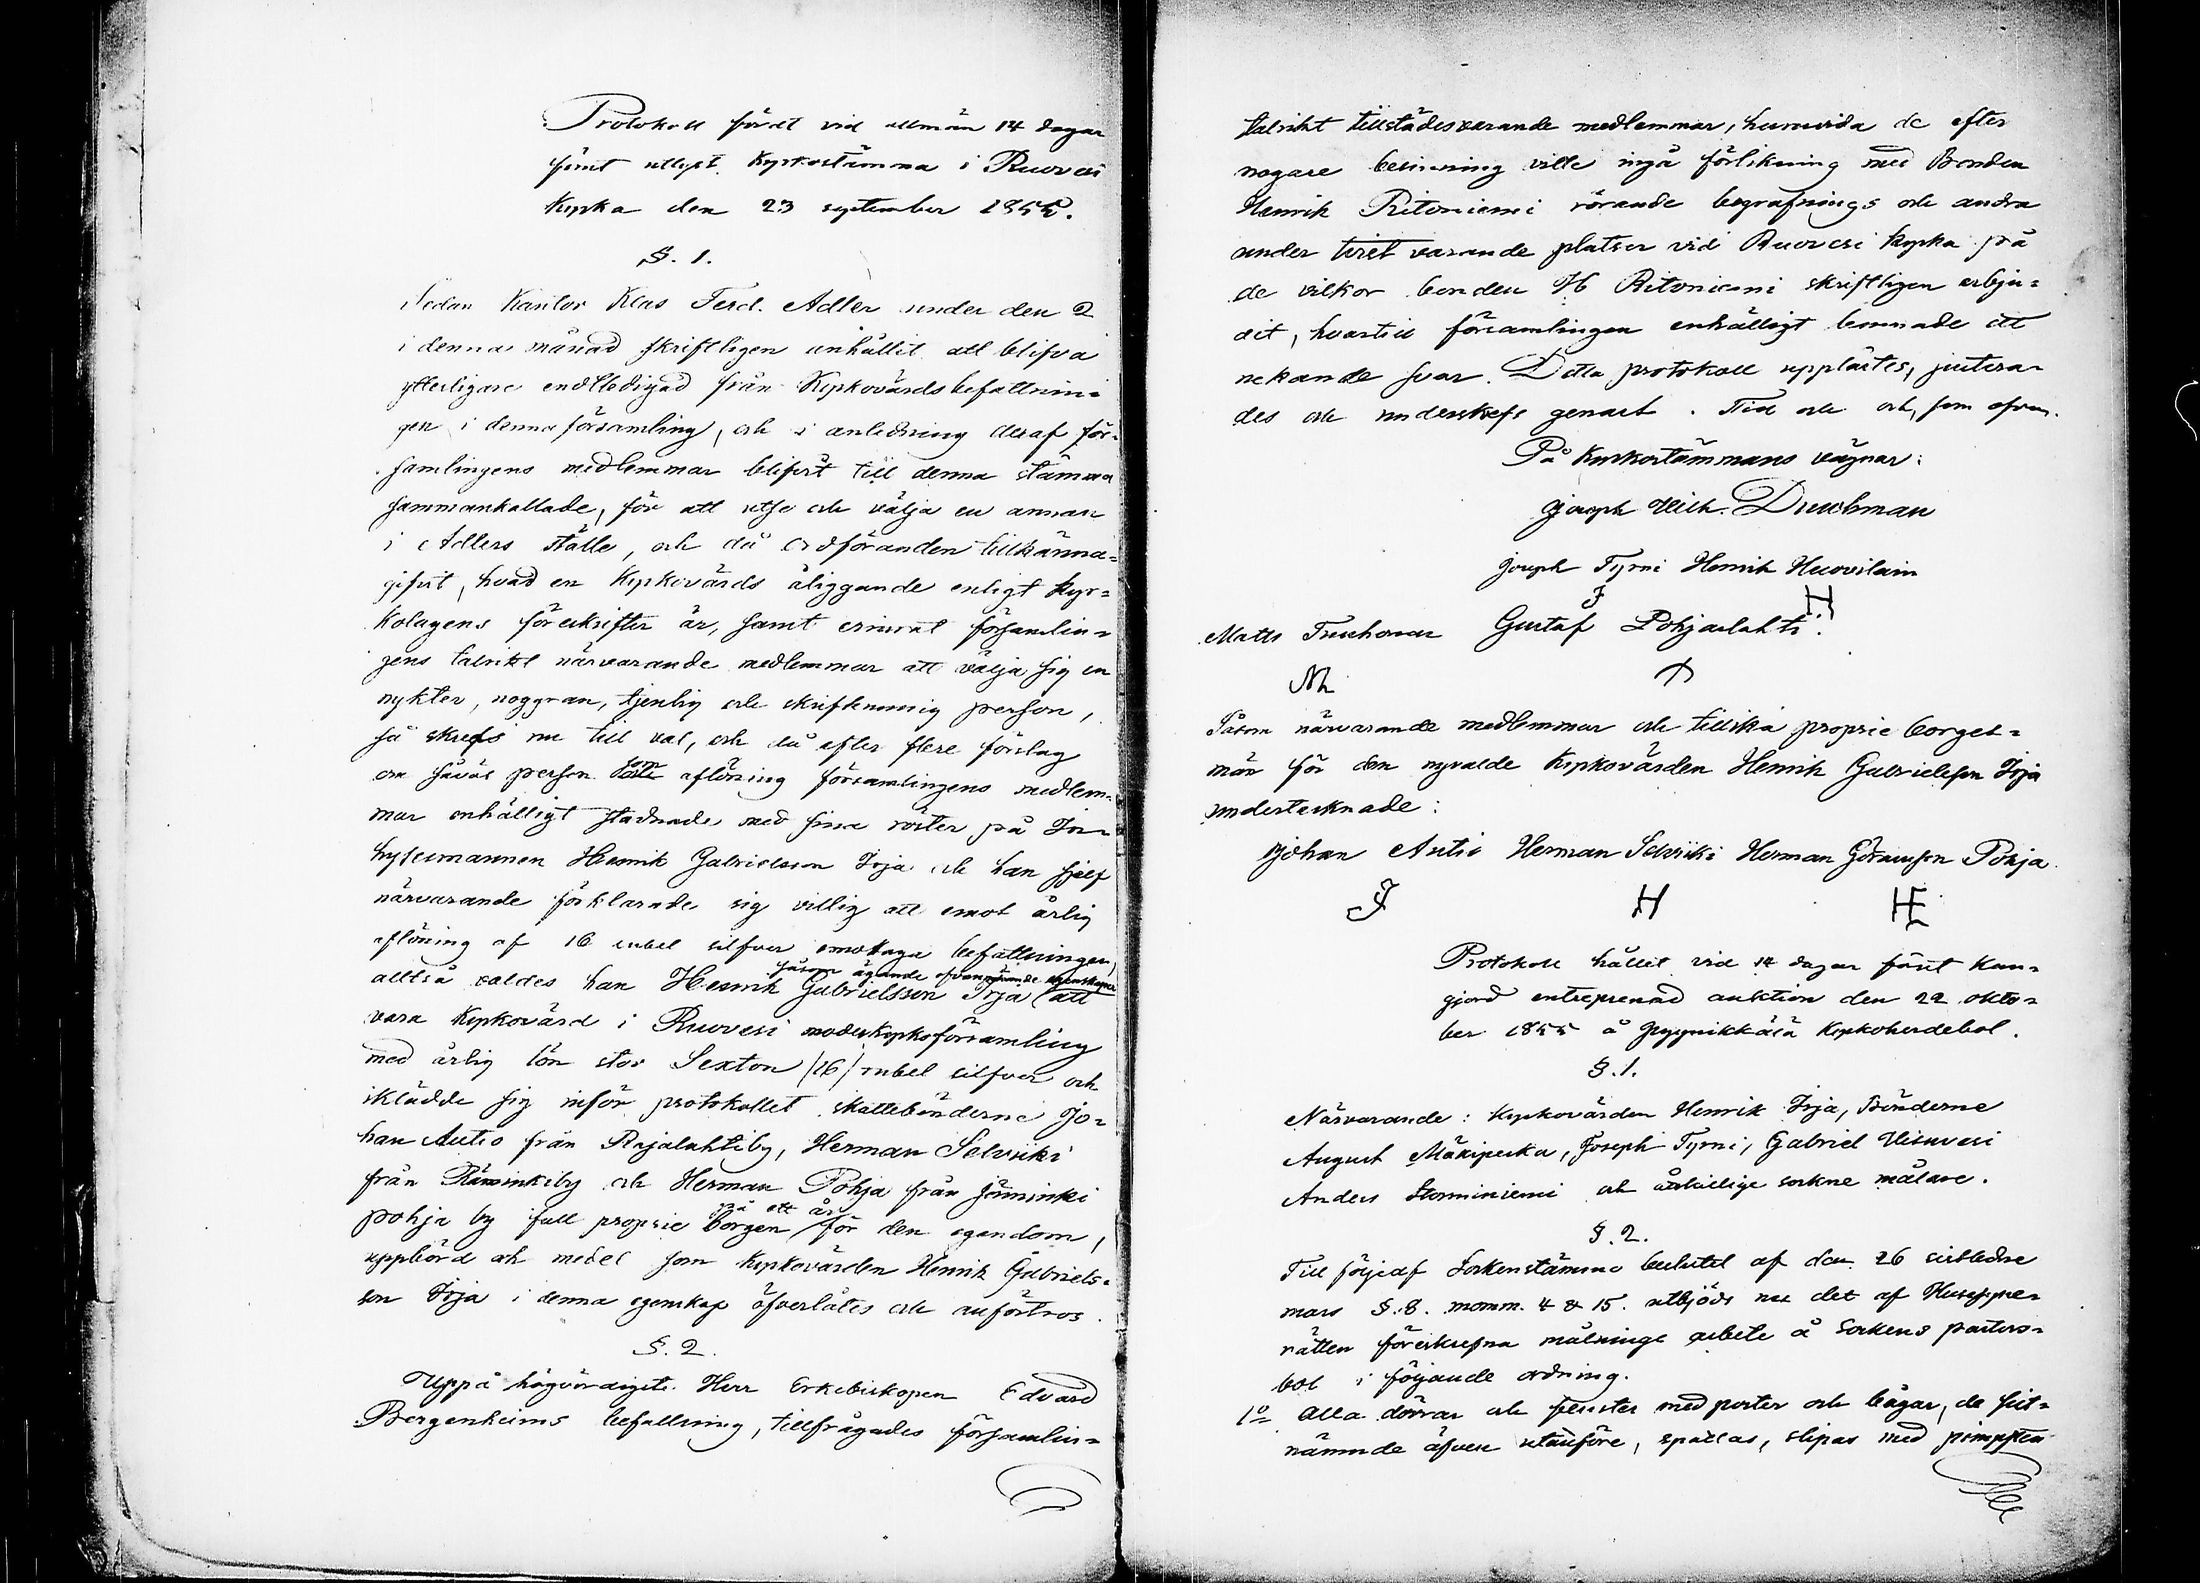 Protokoll fördt vid allmän 14 dagar
förut utlyst Kyrkostämma i Ruovesi
Kyrka den 23 september 1855.
§. 1.
Sedan Kantor Klas Ferd. Adler under den 2
i denna månad skriftligen anhållit att blifva
ytterligare endtledigad från Kyrkovärdsbefattnin=
gen i denna församling, och i anledning deraf för=
samlingens medlemmar blifvit till denna stämma
sammankallade, för att utse och välja en annan
i Adlers ställe, och då Ordföranden tillkänna=
gifvit, hvad en Kyrkovärds åliggande enligt Kyr=
kolagens föreskrifter är, samt erinrat församlin=
gens talrikt närvarande medlemmar att välja sig en
nykter, noggran, tjenlig och skrifkunnig person,
så skreds nu till val, och då efter flere förslag
om såväl person som aflöning församlingens medlem=
mar enhälligt stadnade med sina röster på
hysesmannen Henrik Gabrielsson Irja och han sjelf
närvarande förklarade sig villig att emot årlig
aflöning af 16 rubel silfver emottaga befattningen,
såsom ägande ofvannämde egenskaper
alltså valdes han Henrik Gabrielsson Irja att
vara Kyrkovärd i Ruovesi moderkyrkoförsamling
med årlig lön stor Sexton /16/ rubel silfver och
iklädde sig inför protokollet skattebönderne Jo=
han Autio från Rajalahtiby, Herman Selviiki
från Räminkiby och Herman Pohja från Jäminki
på ett år
pohja by full proprie borgen för den egendom,
uppbörd och medel som Kyrkovärden Henrik Gabriels=
son Irja i denna egenskap öfverlåtes och anförtros.
§. 2.
Uppå högvördigste Herr Erkebiskopen Edvard
Bergenheims befallning, tillfrågades församlin=
talrikt tillstädesvarande medlemmar, huruvida de efter
nogare besinning ville ingå förlikning med Bonden
Henrik Ritoniemi rörande begrafnings och andra
under tvist varande platser vid Ruovesi kyrka på
de vilkor bonden H Ritoniemi skriftligen erbju=
dit, hvartill församlingen enhälligt lemnade ett
nekande svar. Detta protokoll upplästes, justera=
des och underskrefs genast. Tid och ort, som ofvan.
På Kyrkostämmans vägnar:
Joseph Wilh. Durchman
Joseph Tyrni Henrik Huovilain
J H
Matts Gustaf Pohjaslahti.
M
Såsom närvarande medlemmar och tillika proprie borges=
män för den nyvalde Kyrkovärden Henrik Gabrielsson Irja
undertecknade:
Johan Autio Herman Selviiki Herman Göransson Pohja
J H HE
Protokoll hållet vid 14 dagar förut kun=
gjord entreprenad auktion den 22 okto=
ber 1855 å Pyynikkälä Kyrkoherdebol.
§. 1.
Närvarande: Kyrkovärden Henrik Irja, Bönderne
August Mäkipeska, Joseph Tyrni, Gabriel Visuvesi
Anders Storminiemi och åtskillige sockne målare.
§. 2.
Till följe af Sockenstämmo beslutet af den 26 sistledne
mars §. 8. momm. 4 & 15. utbjöds nu det af Husesyne=
rätten föreskrefna målnings arbete å Sockens pastors=
bol i följande ordning.
1o Alla dörrar och fenster med poster och bågar, de sist=
nämnde äfven utanföre, spaklas, slipas med pimpsten